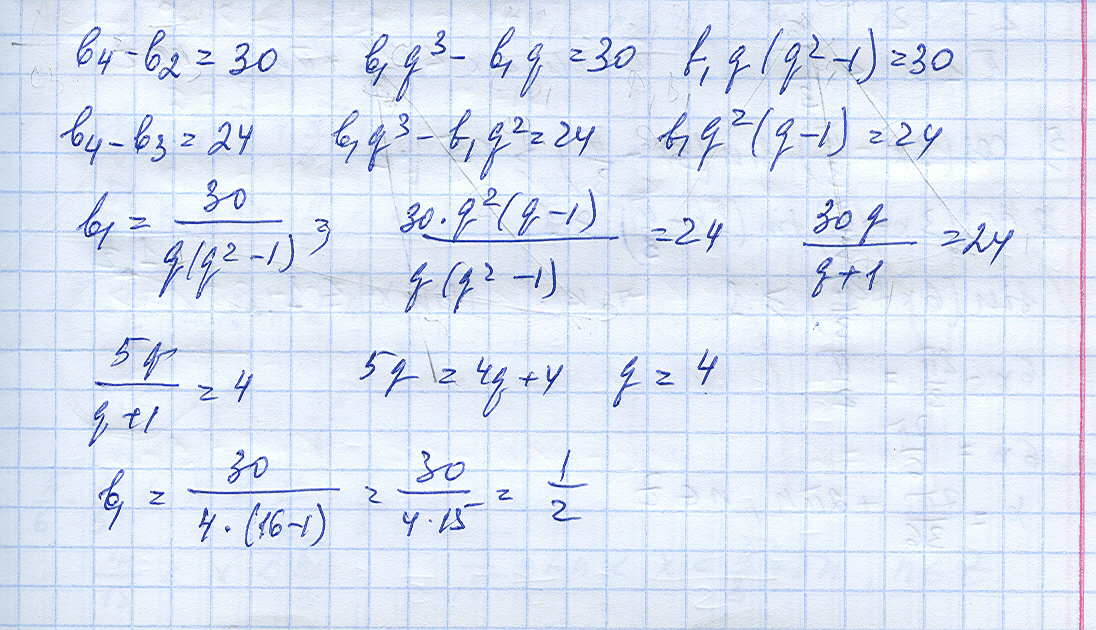 b₄ - b₂ = 30 b₁q³ - b₁q = 30 b₁q(q² - 1) = 30
b₄ - b₃ = 24 b₁q³ - b₁q² = 24 b₁q²(q - 1) = 24
b₁ = 30 / q(q² - 1) ; 30·q²(q - 1) / q(q² - 1) = 24 30q / q + 1 = 24
5q / q + 1 = 4 5q = 4q + 4 q = 4
b₁ = 30 / 4·(16 - 1) = 30 / 4·15 = 1 / 2